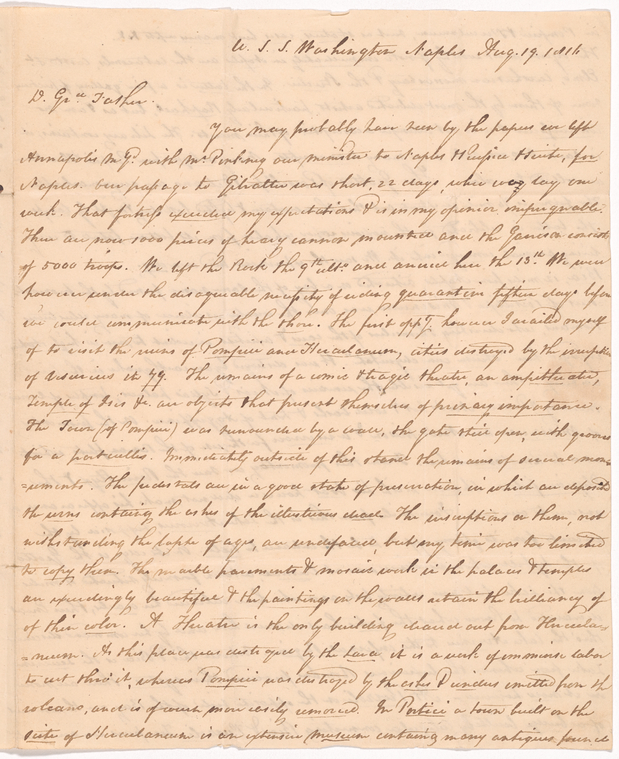 U. S. S. Washington Naples Aug. 19. 1816
Dr. Grd. Father.
You may probably have seen by the papers our left
Annapolis Md. with Mr. Pinkney our minister to Naples & Russia & suite, for
Naples. Our passage to Gibralter was short, 22 days, where we lay one
week. That fortress exceeded my expectations & is in my opinion impregnable.
There are now 1000 pieces of heavy cannon mounted and the Garrison consists
of 5000 troops. We left the Rock the 9th ulto. and arrived here the 13th. We were
however under the disagreeable necessity of riding quarantine fifteen days before
we could communicate with the shore. The first oppy. however I availed myself
of to visit the ruins of Pompeii and Herculaneum, cities destroyed by the irruption
of Vesuvius in 79. The remains of a comic & tragic theatre, an ampitheatre,
Temple of Isis &c. are objects that present themselves of primary importance.
The Town (of Pompeii) was surrounded by a wall, the gate still open, with grooves
for a portcullis. Immediately outside of this stand the remains of several mon-
-uments. The pedestals are in a good state of preservation, in which are deposited
the urns containg the ashes of the illustrious dead. The inscriptions on them, not
withstanding the lapse of ages, are undefaced, but my time was too limited
to copy them. The marble pavements & mosaic work in the palaces & temples
are exceedingly beautiful & the paintings on the walls retain the brilliancy of
of their color. A Theatre is the only building cleared out from Hercula-
-neum. As this place was destroyed by the Lava it is a work of immense labor
to cut thro' it, whereas Pompeii was destroyed by the ashes & cinders emitted from the
volcano, and is of course more easily removed. In Portici a town built on the
scite of Herculaneum is an extensive museum containg many antiques found